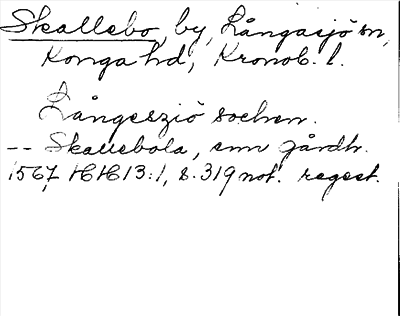 Skallebo, by, Långasjö sn,
Konga hd, Kronob. l.
Långesziö sochen.
-- Skallebola, enn gårdh.
1567, HH 13:1, s. 319 not. regest.